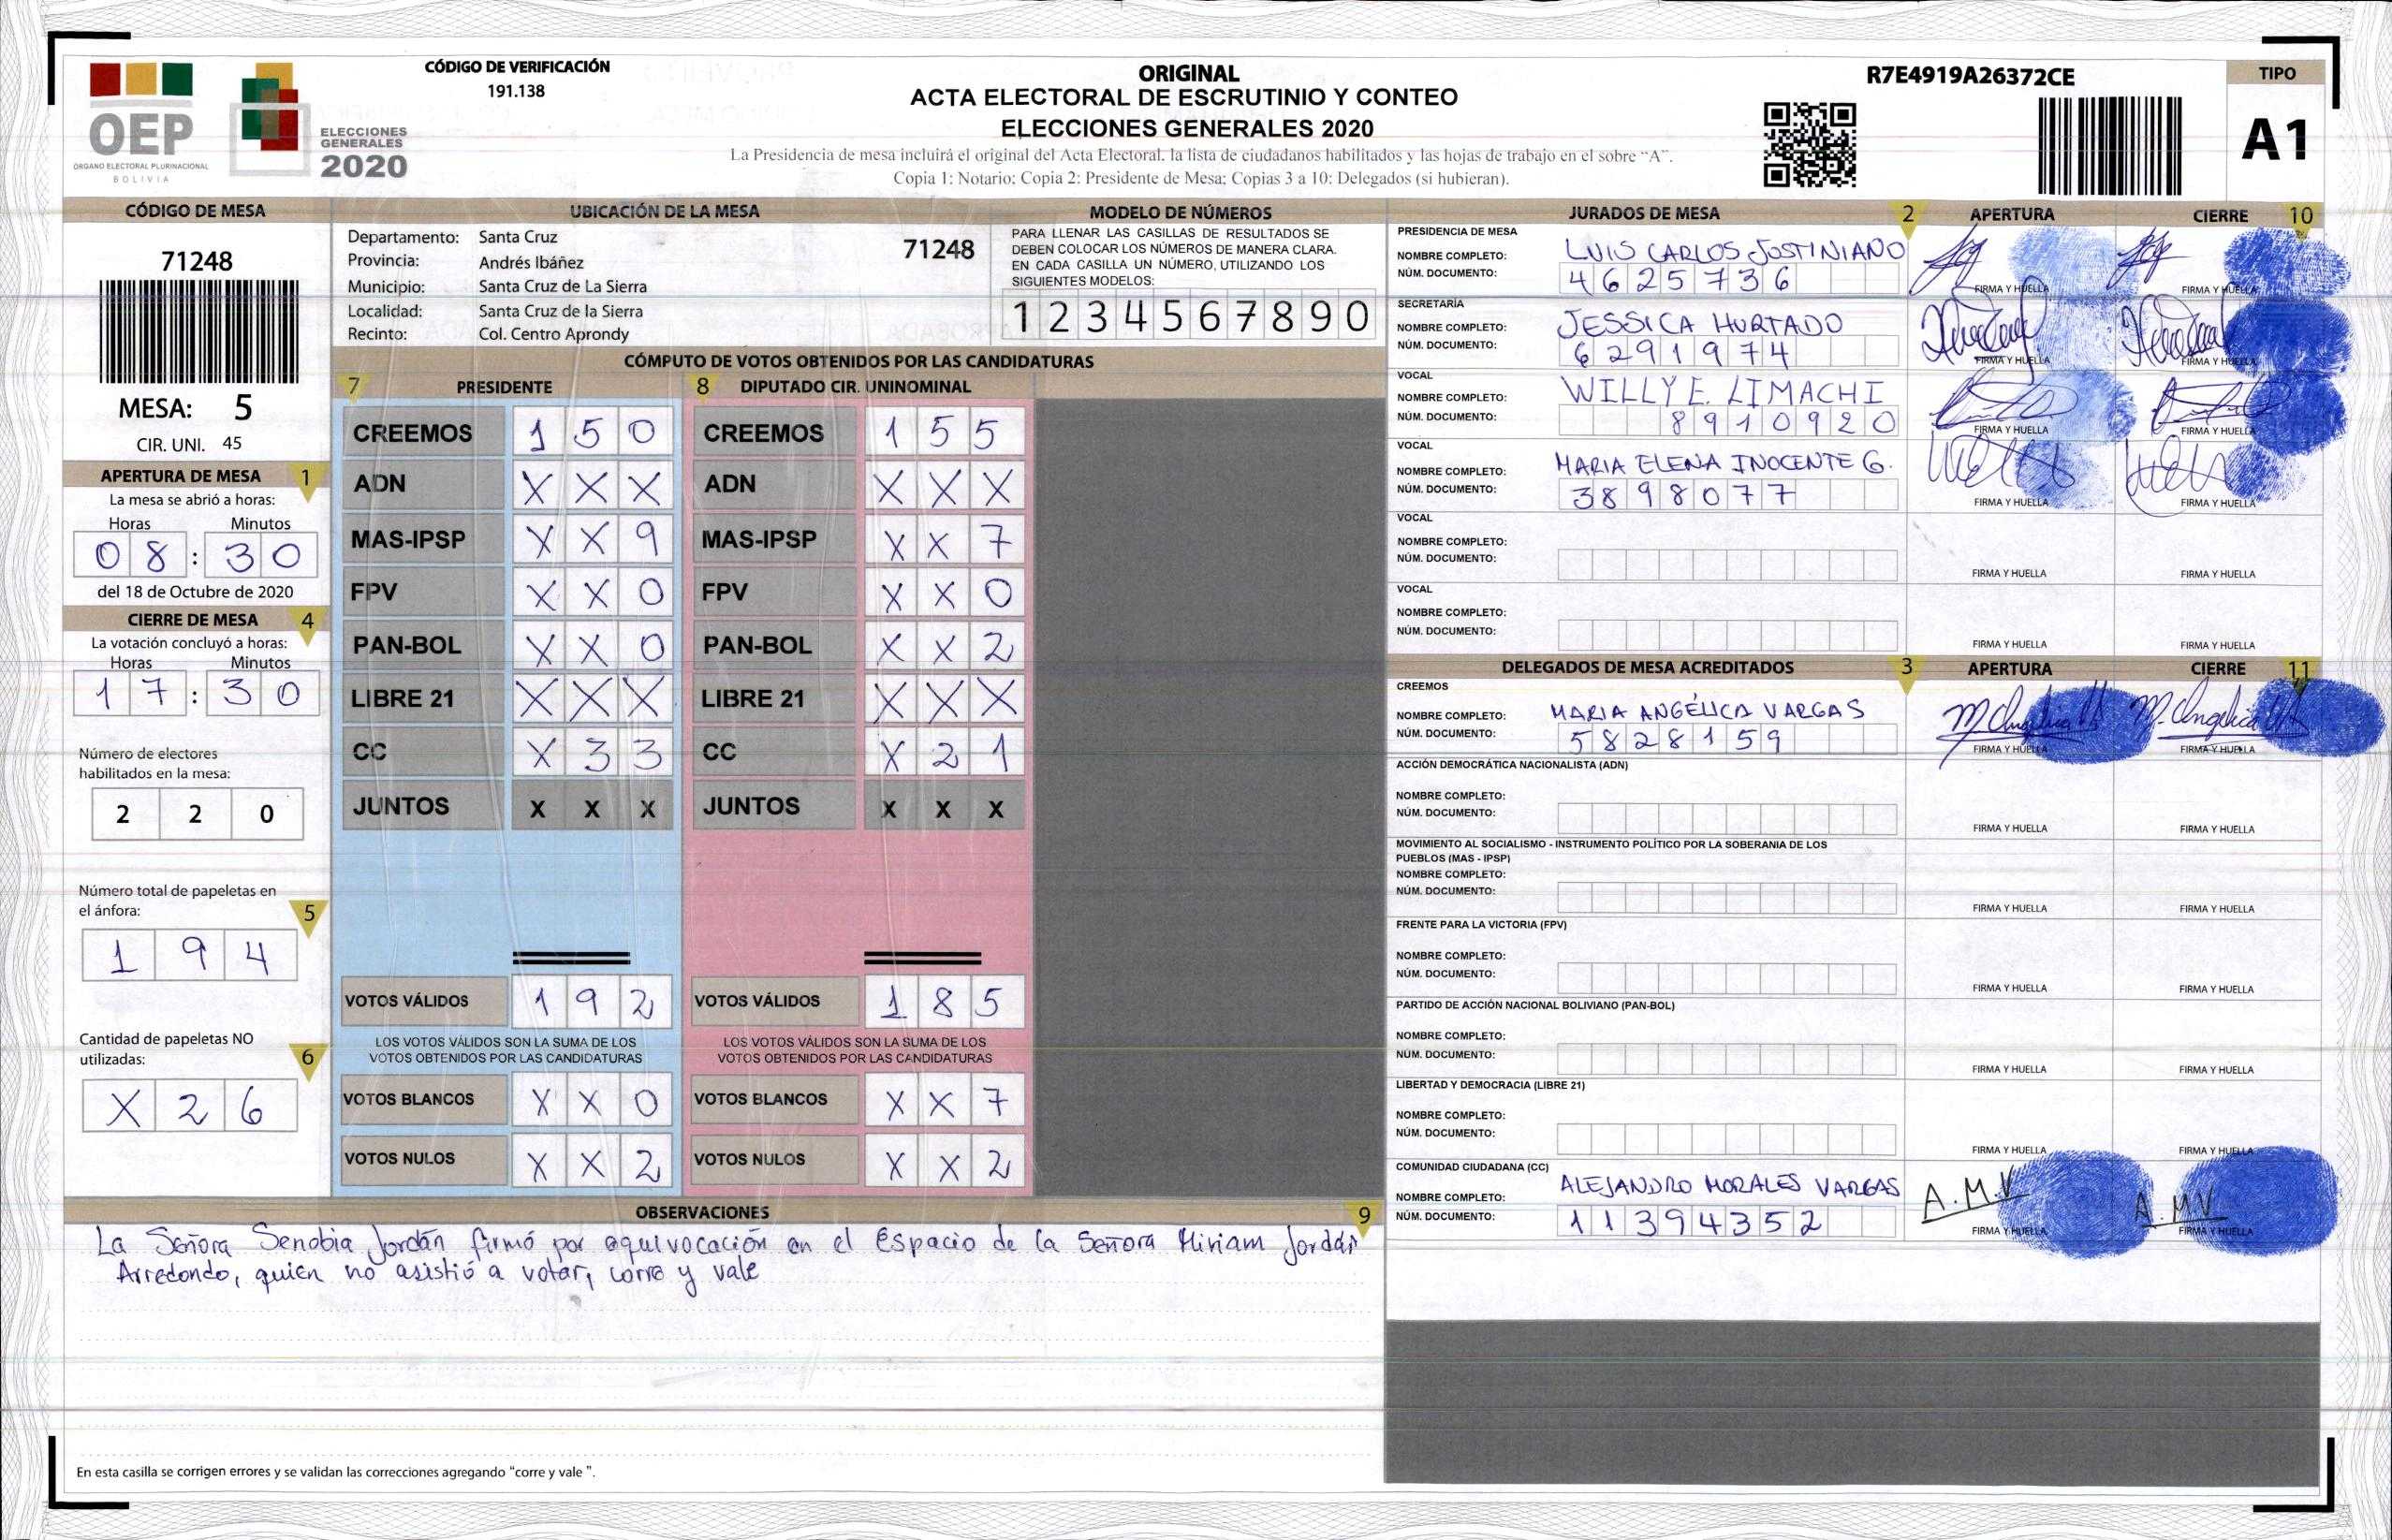 CÓDIGO DE VERIFICACIÓN
191.138
OEP
ÓRGANO ELECTORAL PLURINACIONAL
BOLIVIA
ELECCIONES
GENERALES
2020
ORIGINAL
ACTA ELECTORAL DE ESCRUTINIO Y CONTEO
ELECCIONES GENERALES 2020
La Presidencia de mesa incluirá el original del Acta Electoral, la lista de ciudadanos habilitados y las hojas de trabajo en el sobre "A".
Copia 1: Notario; Copia 2: Presidente de Mesa; Copias 3 a 10: Delegados (si hubieran).
R7E4919A26372CE
TIPO
A1
CÓDIGO DE MESA
71248
MESA: 5
CIR. UNI. 45
APERTURA DE MESA 1
La mesa se abrió a horas:
Horas Minutos
08:30
del 18 de Octubre de 2020
CIERRE DE MESA 4
La votación concluyó a horas:
Horas Minutos
17:30
Número de electores
habilitados en la mesa:
2 2 0
Número total de papeletas en
el ánfora: 5
1 9 4
Cantidad de papeletas NO
utilizadas: 6
X 2 6
UBICACIÓN DE LA MESA
Departamento: Santa Cruz 71248
Provincia: Andrés Ibáñez
Municipio: Santa Cruz de La Sierra
Localidad: Santa Cruz de la Sierra
Recinto: Col. Centro Aprondy
MODELO DE NÚMEROS
PARA LLENAR LAS CASILLAS DE RESULTADOS SE
DEBEN COLOCAR LOS NÚMEROS DE MANERA CLARA.
EN CADA CASILLA UN NÚMERO, UTILIZANDO LOS
SIGUIENTES MODELOS:
1 2 3 4 5 6 7 8 9 0
CÓMPUTO DE VOTOS OBTENIDOS POR LAS CANDIDATURAS
7 PRESIDENTE 8 DIPUTADO CIR. UNINOMINAL
CREEMOS 1 5 0 CREEMOS 1 5 5
ADN X X X ADN X X X
MAS-IPSP X X 9 MAS-IPSP X X 7
FPV X X 0 FPV X X 0
PAN-BOL X X 0 PAN-BOL X X 2
LIBRE 21 X X X LIBRE 21 X X X
CC X 3 3 CC X 2 1
JUNTOS X X X JUNTOS X X X
VOTOS VÁLIDOS 1 9 2 VOTOS VÁLIDOS 1 8 5
LOS VOTOS VÁLIDOS SON LA SUMA DE LOS LOS VOTOS VÁLIDOS SON LA SUMA DE LOS
VOTOS OBTENIDOS POR LAS CANDIDATURAS VOTOS OBTENIDOS POR LAS CANDIDATURAS
VOTOS BLANCOS X X 0 VOTOS BLANCOS X X 7
VOTOS NULOS X X 2 VOTOS NULOS X X 2
OBSERVACIONES 9
La Señora Senobia Jordán firmó por equivocación en el Espacio de la Señora Miriam Jordán
Arredondo, quien no asistió a votar, corre y vale
En esta casilla se corrigen errores y se validan las correcciones agregando "corre y vale ".
JURADOS DE MESA 2 APERTURA CIERRE 10
PRESIDENCIA DE MESA
NOMBRE COMPLETO: LUIS CARLOS JUSTINIANO
NÚM. DOCUMENTO: 4625736
FIRMA Y HUELLA FIRMA Y HUELLA
SECRETARÍA
NOMBRE COMPLETO: JESSICA HURTADO
NÚM. DOCUMENTO: 6291974
FIRMA Y HUELLA FIRMA Y HUELLA
VOCAL
NOMBRE COMPLETO: WILLY E. LIMACHI
NÚM. DOCUMENTO: 8910920
FIRMA Y HUELLA FIRMA Y HUELLA
VOCAL
NOMBRE COMPLETO: MARIA ELENA INOCENTE G.
NÚM. DOCUMENTO: 3898077
FIRMA Y HUELLA FIRMA Y HUELLA
VOCAL
NOMBRE COMPLETO:
NÚM. DOCUMENTO:
FIRMA Y HUELLA FIRMA Y HUELLA
VOCAL
NOMBRE COMPLETO:
NÚM. DOCUMENTO:
FIRMA Y HUELLA FIRMA Y HUELLA
DELEGADOS DE MESA ACREDITADOS 3 APERTURA CIERRE 11
CREEMOS
NOMBRE COMPLETO: MARIA ANGÉLICA VARGAS
NÚM. DOCUMENTO: 5828159
FIRMA Y HUELLA FIRMA Y HUELLA
ACCIÓN DEMOCRÁTICA NACIONALISTA (ADN)
NOMBRE COMPLETO:
NÚM. DOCUMENTO:
FIRMA Y HUELLA FIRMA Y HUELLA
MOVIMIENTO AL SOCIALISMO - INSTRUMENTO POLÍTICO POR LA SOBERANIA DE LOS
PUEBLOS (MAS - IPSP)
NOMBRE COMPLETO:
NÚM. DOCUMENTO:
FIRMA Y HUELLA FIRMA Y HUELLA
FRENTE PARA LA VICTORIA (FPV)
NOMBRE COMPLETO:
NÚM. DOCUMENTO:
FIRMA Y HUELLA FIRMA Y HUELLA
PARTIDO DE ACCIÓN NACIONAL BOLIVIANO (PAN-BOL)
NOMBRE COMPLETO:
NÚM. DOCUMENTO:
FIRMA Y HUELLA FIRMA Y HUELLA
LIBERTAD Y DEMOCRACIA (LIBRE 21)
NOMBRE COMPLETO:
NÚM. DOCUMENTO:
FIRMA Y HUELLA FIRMA Y HUELLA
COMUNIDAD CIUDADANA (CC)
NOMBRE COMPLETO: ALEJANDRO MORALES VARGAS A.M.V A.MV
NÚM. DOCUMENTO: 11394352
FIRMA Y HUELLA FIRMA Y HUELLA